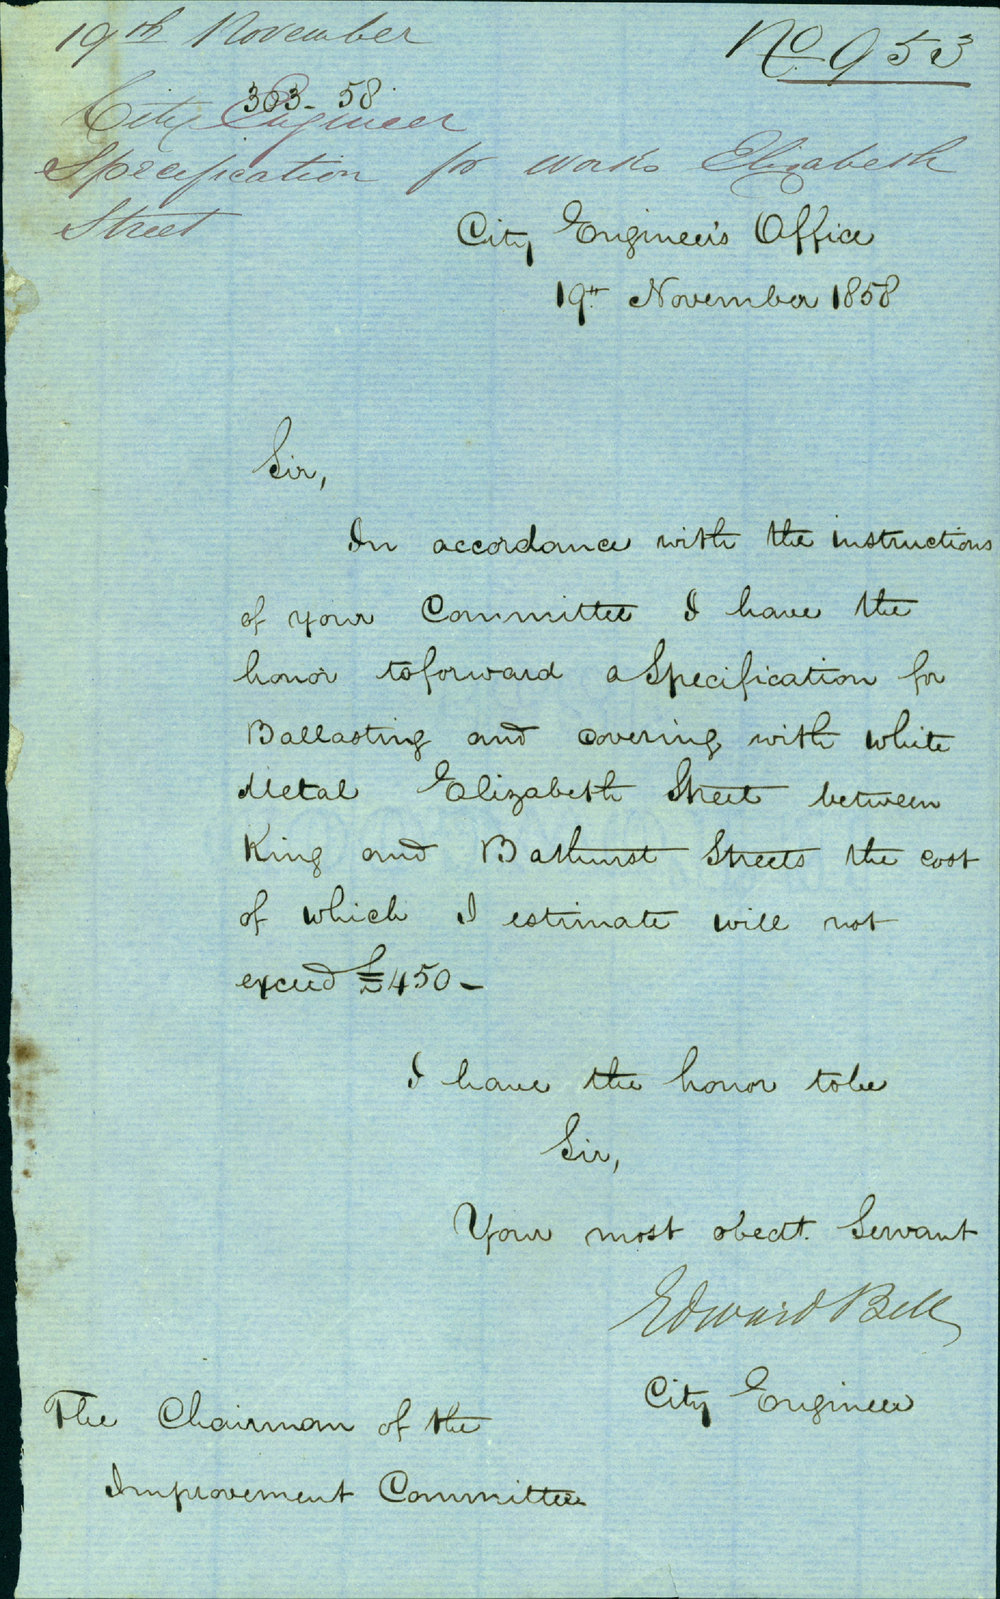 19th November
No. 953
363-58
City Engineer
Specification for works Elizabeth
Street
City Engineer's Office
19th November 1858
Sir,
In accordance with the instructions
of your Committee I have the
honor to forward a Specification for
Ballasting and covering with white
Metal Elizabeth Street between
King and Bathurst Streets the cost
of which I estimate will not
exceed £450-
I have the honor to be
Sir,
Your most obedt. Servant
Edward Bell
City Engineer
The Chairman of the
Improvement Committee